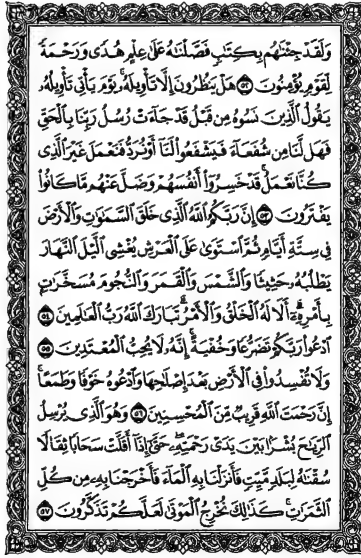 وَلَقَدْ جِئْنَٰهُم بِكِتَٰبٍ فَصَّلْنَٰهُ عَلَىٰ عِلْمٍ هُدًى وَرَحْمَةً
لِّقَوْمٍ يُؤْمِنُونَ ٥٢ هَلْ يَنظُرُونَ إِلَّا تَأْوِيلَهُۥ يَوْمَ يَأْتِى تَأْوِيلُهُۥ
يَقُولُ الَّذِينَ نَسُوهُ مِن قَبْلُ قَدْ جَآءَتْ رُسُلُ رَبِّنَا بِالْحَقِّ
فَهَل لَّنَا مِن شُفَعَآءَ فَيَشْفَعُوا۟ لَنَآ أَوْ نُرَدُّ فَنَعْمَلَ غَيْرَ الَّذِى
كُنَّا نَعْمَلُ قَدْ خَسِرُوٓا۟ أَنفُسَهُمْ وَضَلَّ عَنْهُم مَّا كَانُوا۟
يَفْتَرُونَ ٥٣ إِنَّ رَبَّكُمُ اللَّهُ الَّذِى خَلَقَ السَّمَٰوَٰتِ وَالْأَرْضَ
فِى سِتَّةِ أَيَّامٍ ثُمَّ اسْتَوَىٰ عَلَى الْعَرْشِ يُغْشِى الَّيْلَ النَّهَارَ
يَطْلُبُهُۥ حَثِيثًا وَالشَّمْسَ وَالْقَمَرَ وَالنُّجُومَ مُسَخَّرَٰتٍۭ
بِأَمْرِهِۦٓ أَلَا لَهُ الْخَلْقُ وَالْأَمْرُ تَبَارَكَ اللَّهُ رَبُّ الْعَٰلَمِينَ ٥٤
ادْعُوا۟ رَبَّكُمْ تَضَرُّعًا وَخُفْيَةً إِنَّهُۥ لَا يُحِبُّ الْمُعْتَدِينَ ٥٥
وَلَا تُفْسِدُوا۟ فِى الْأَرْضِ بَعْدَ إِصْلَٰحِهَا وَادْعُوهُ خَوْفًا وَطَمَعًا
إِنَّ رَحْمَتَ اللَّهِ قَرِيبٌ مِّنَ الْمُحْسِنِينَ ٥٦ وَهُوَ الَّذِى يُرْسِلُ
الرِّيَٰحَ بُشْرًۢا بَيْنَ يَدَىْ رَحْمَتِهِۦ حَتَّىٰٓ إِذَآ أَقَلَّتْ سَحَابًا ثِقَالًا
سُقْنَٰهُ لِبَلَدٍ مَّيِّتٍ فَأَنزَلْنَا بِهِ الْمَآءَ فَأَخْرَجْنَا بِهِۦ مِن كُلِّ
الثَّمَرَٰتِ كَذَٰلِكَ نُخْرِجُ الْمَوْتَىٰ لَعَلَّكُمْ تَذَكَّرُونَ ٥٧